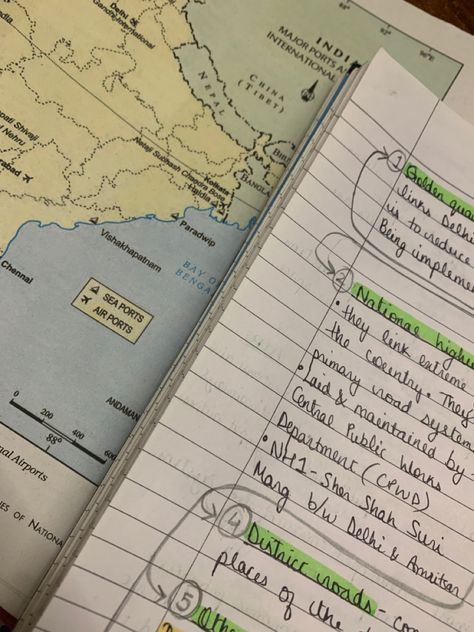 Delhi
Indira
Gandhi International
INDI
MAJOR PORTS A
INTERNATIONAL
84°
88°
92°
96°E
CHINA
(TIBET)
NEPAL
BANGL
Netaji Subhash Chandra Bose
Kolkata
Haldia
pati Shivaji
Nehru
rabad
Paradwip
Vishakhapatnam
BAY OF
BENGA
Chennai
SEA PORTS
AIR PORTS
ANDAMAN
0 200 400 600
88°
nal Airports
IES OF NATIONA
1 Golden qua
links Delhi
us to reduce
Being impleme
2 National highw
• they link extreme
the country. They
primary road system
• Laid & maintained by
Central Public Works
Department (CPWD)
• NH1 - Sher Shah Suri
Marg b/w Delhi & Amritsar
4 District roads - con
places of the d
5 Othe